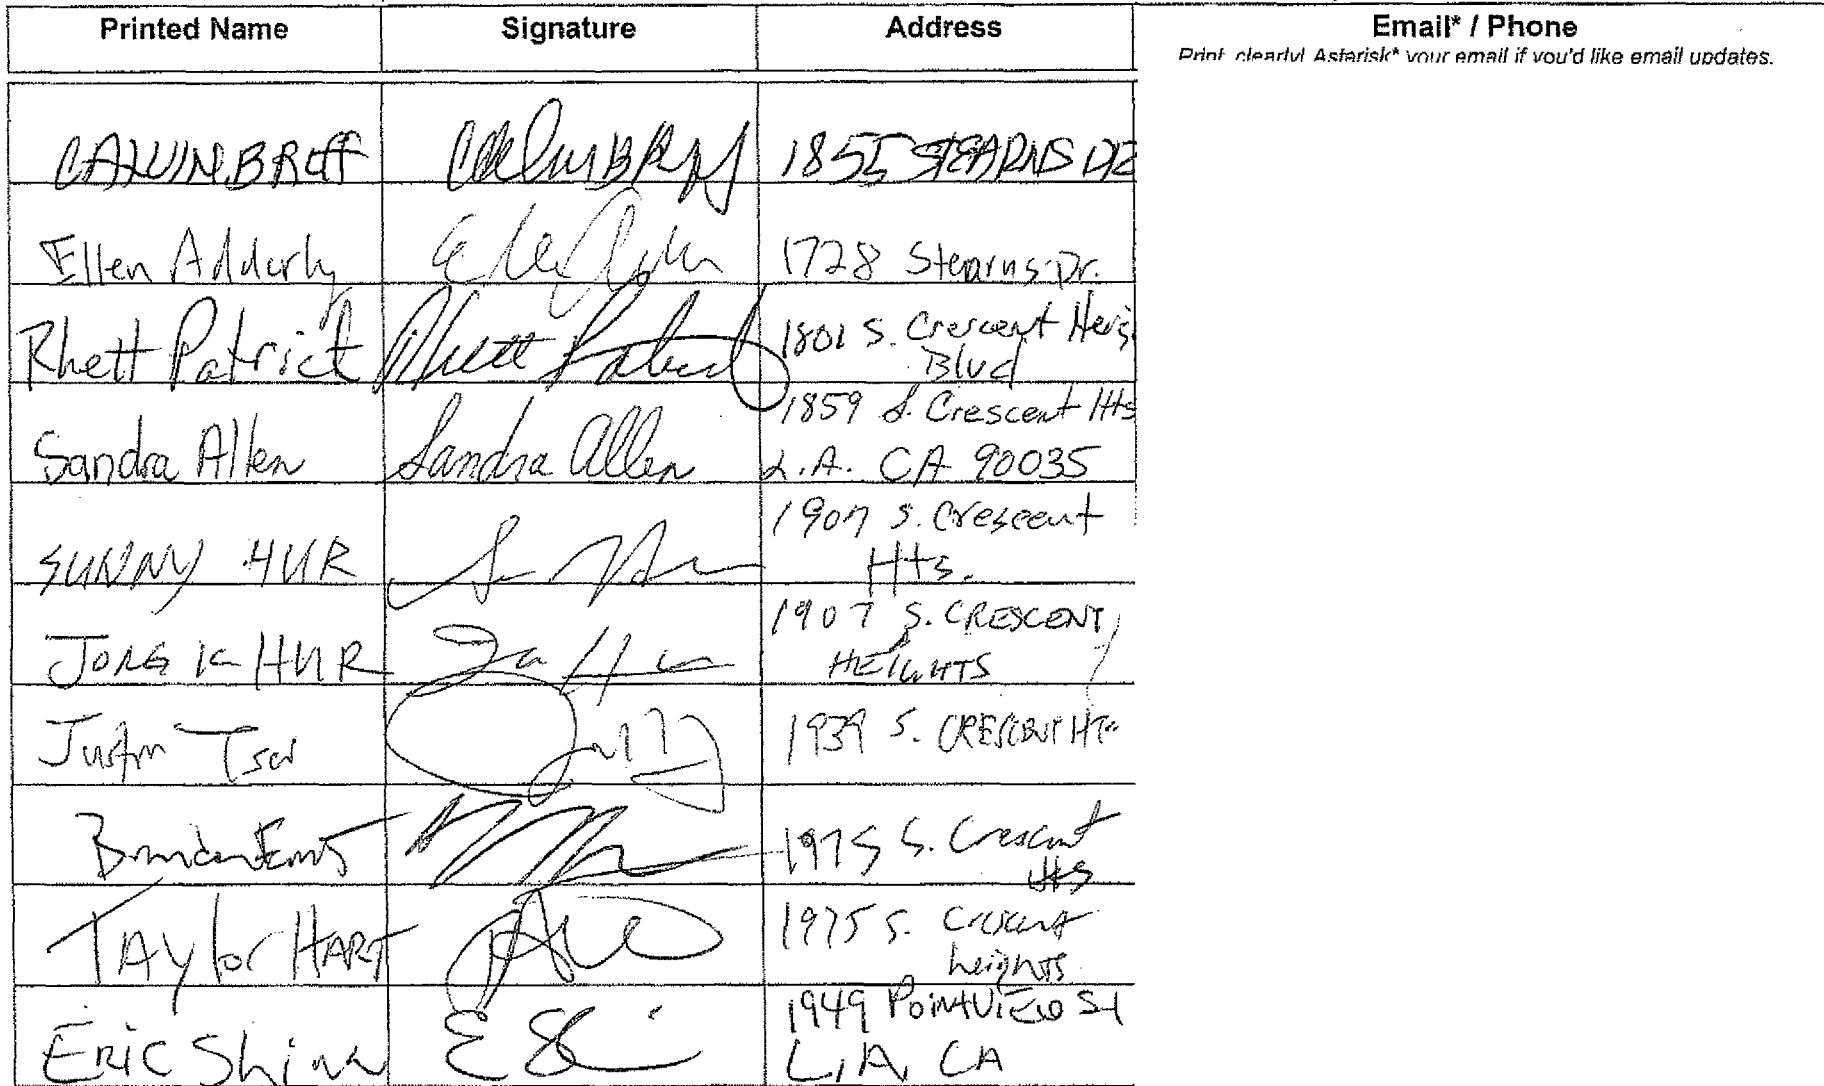 Printed Name Signature Address Email* / Phone
Print clearly! Asterisk* your email if you'd like email updates.
CALVIN BROFF 1855 STEARNS DR
Ellen Adderly 1728 Stearns Dr.
Rhett Patrick Rhett Patrick 1801 S. Crescent Heig
Blvd
Sandra Allen Sandra Allen 1859 S. Crescent Hts
L.A. CA 90035
SUNNY HUR 1907 S. Crescent
Hts.
JONG K HUR 1907 S. CRESCENT
HEIGHTS
Justin Tsai 1939 S. CRESCENT HTS
1975 S. Crescent
Hts
TAYlor HART 1975 S. Crescent
heights
ERIC Shinn 1949 PointVIEW St
L.A. CA